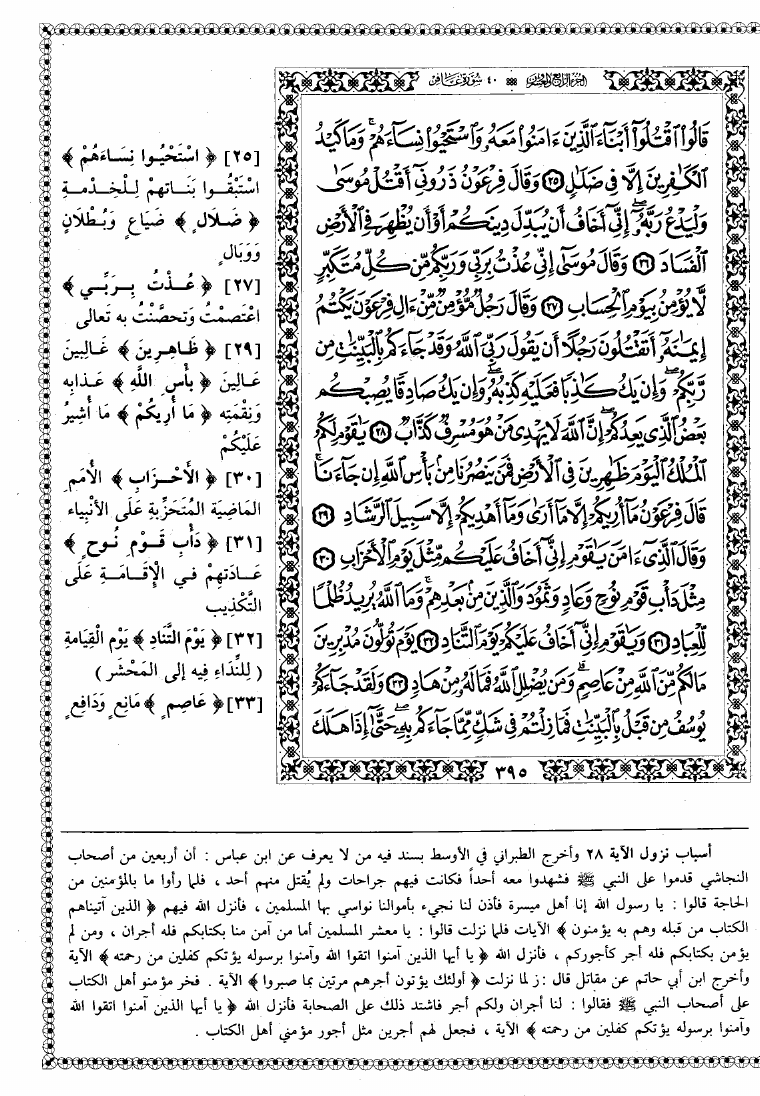 الجزء الرابع والعشرون ٤٠ سورة غافر
قَالُوا۟ ٱقْتُلُوٓا۟ أَبْنَآءَ ٱلَّذِينَ ءَامَنُوا۟ مَعَهُۥ وَٱسْتَحْيُوا۟ نِسَآءَهُمْ ۚ وَمَا كَيْدُ
ٱلْكَـٰفِرِينَ إِلَّا فِى ضَلَـٰلٍ ٢٥ وَقَالَ فِرْعَوْنُ ذَرُونِىٓ أَقْتُلْ مُوسَىٰ
وَلْيَدْعُ رَبَّهُۥٓ ۖ إِنِّىٓ أَخَافُ أَن يُبَدِّلَ دِينَكُمْ أَوْ أَن يُظْهِرَ فِى ٱلْأَرْضِ
ٱلْفَسَادَ ٢٦ وَقَالَ مُوسَىٰٓ إِنِّى عُذْتُ بِرَبِّى وَرَبِّكُم مِّن كُلِّ مُتَكَبِّرٍ
لَّا يُؤْمِنُ بِيَوْمِ ٱلْحِسَابِ ٢٧ وَقَالَ رَجُلٌ مُّؤْمِنٌ مِّنْ ءَالِ فِرْعَوْنَ يَكْتُمُ
إِيمَـٰنَهُۥٓ أَتَقْتُلُونَ رَجُلًا أَن يَقُولَ رَبِّىَ ٱللَّهُ وَقَدْ جَآءَكُم بِٱلْبَيِّنَـٰتِ مِن
رَّبِّكُمْ ۖ وَإِن يَكُ كَـٰذِبًا فَعَلَيْهِ كَذِبُهُۥ ۖ وَإِن يَكُ صَادِقًا يُصِبْكُم
بَعْضُ ٱلَّذِى يَعِدُكُمْ ۖ إِنَّ ٱللَّهَ لَا يَهْدِى مَنْ هُوَ مُسْرِفٌ كَذَّابٌ ٢٨ يَـٰقَوْمِ لَكُمُ
ٱلْمُلْكُ ٱلْيَوْمَ ظَـٰهِرِينَ فِى ٱلْأَرْضِ فَمَن يَنصُرُنَا مِنۢ بَأْسِ ٱللَّهِ إِن جَآءَنَا ۚ
قَالَ فِرْعَوْنُ مَآ أُرِيكُمْ إِلَّا مَآ أَرَىٰ وَمَآ أَهْدِيكُمْ إِلَّا سَبِيلَ ٱلرَّشَادِ ٢٩
وَقَالَ ٱلَّذِىٓ ءَامَنَ يَـٰقَوْمِ إِنِّىٓ أَخَافُ عَلَيْكُم مِّثْلَ يَوْمِ ٱلْأَحْزَابِ ٣٠
مِثْلَ دَأْبِ قَوْمِ نُوحٍ وَعَادٍ وَثَمُودَ وَٱلَّذِينَ مِنۢ بَعْدِهِمْ ۚ وَمَا ٱللَّهُ يُرِيدُ ظُلْمًا
لِّلْعِبَادِ ٣١ وَيَـٰقَوْمِ إِنِّىٓ أَخَافُ عَلَيْكُمْ يَوْمَ ٱلتَّنَادِ ٣٢ يَوْمَ تُوَلُّونَ مُدْبِرِينَ
مَا لَكُم مِّنَ ٱللَّهِ مِنْ عَاصِمٍ ۗ وَمَن يُضْلِلِ ٱللَّهُ فَمَا لَهُۥ مِنْ هَادٍ ٣٣ وَلَقَدْ جَآءَكُمْ
يُوسُفُ مِن قَبْلُ بِٱلْبَيِّنَـٰتِ فَمَا زِلْتُمْ فِى شَكٍّ مِّمَّا جَآءَكُم بِهِۦ ۖ حَتَّىٰٓ إِذَا هَلَكَ
٣٩٥
[٢٥] ﴿ اسْتَحْيُوا نِسَاءَهُمْ ﴾
اسْتَبْقُوا بَنَاتهِمْ لِلْخِدْمةِ
﴿ ضَلال ﴾ ضَيَاعٍ وَبُطْلَانٍ
وَوَبَالٍ
[٢٧] ﴿ عُذْتُ بِرَبِّي ﴾
اعْتَصمْتُ وَتحصَّنْتُ به تَعالى
[٢٩] ﴿ ظَاهِرِينَ ﴾ غَالِبينَ
عَالِينَ ﴿ بأْسِ اللَّهِ ﴾ عَذابِه
وَنِقْمَتِه ﴿ مَا أُرِيكُمْ ﴾ مَا أُشِيرُ
عَلَيْكُمْ
[٣٠] ﴿ الأَحْزَابِ ﴾ الأُمَمِ
المَاضِيَة المُتَحَزِّبةِ عَلَى الأَنْبِياء
[٣١] ﴿ دَأْبِ قَوْمِ نُوحٍ ﴾
عَادَتهِمْ في الإقَامَةِ عَلَى
التَّكْذِيبِ
[٣٢] ﴿ يَوْمَ التَّنَادِ ﴾ يَوْم الْقِيَامَةِ
( لِلنِّدَاءِ فِيه إلى المَحْشَرِ )
[٣٣] ﴿ عَاصِمٍ ﴾ مَانِعٍ وَدَافِعٍ
أسباب نزول الآية ٢٨ وأخرج الطبراني في الأوسط بسند فيه من لا يعرف عن ابن عباس : أن أربعين من أصحاب
النجاشي قدموا على النبي ﷺ فشهدوا معه أحداً فكانت فيهم جراحات ولم يُقتل منهم أحد ، فلما رأوا ما بالمؤمنين من
الحاجة قالوا : يا رسول الله إنا أهل ميسرة فأذن لنا نجيء بأموالنا نواسي بها المسلمين ، فأنزل الله فيهم ﴿ الذين آتيناهم
الكتاب من قبله وهم به يؤمنون ﴾ الآيات فلما نزلت قالوا : يا معشر المسلمين أما من آمن منا بكتابكم فله أجران ، ومن لم
يؤمن بكتابكم فله أجر كأجوركم ، فأنزل الله ﴿ يا أيها الذين آمنوا اتقوا الله وآمنوا برسوله يؤتكم كفلين من رحمته ﴾ الآية
وأخرج ابن أبي حاتم عن مقاتل قال : ز لما نزلت ﴿ أولئك يؤتون أجرهم مرتين بما صبروا ﴾ الآية . فخر مؤمنو أهل الكتاب
على أصحاب النبي ﷺ فقالوا : لنا أجران ولكم أجر فاشتد ذلك على الصحابة فأنزل الله ﴿ يا أيها الذين آمنوا اتقوا الله
وآمنوا برسوله يؤتكم كفلين من رحمته ﴾ الآية ، فجعل لهم أجرين مثل أجور مؤمني أهل الكتاب .